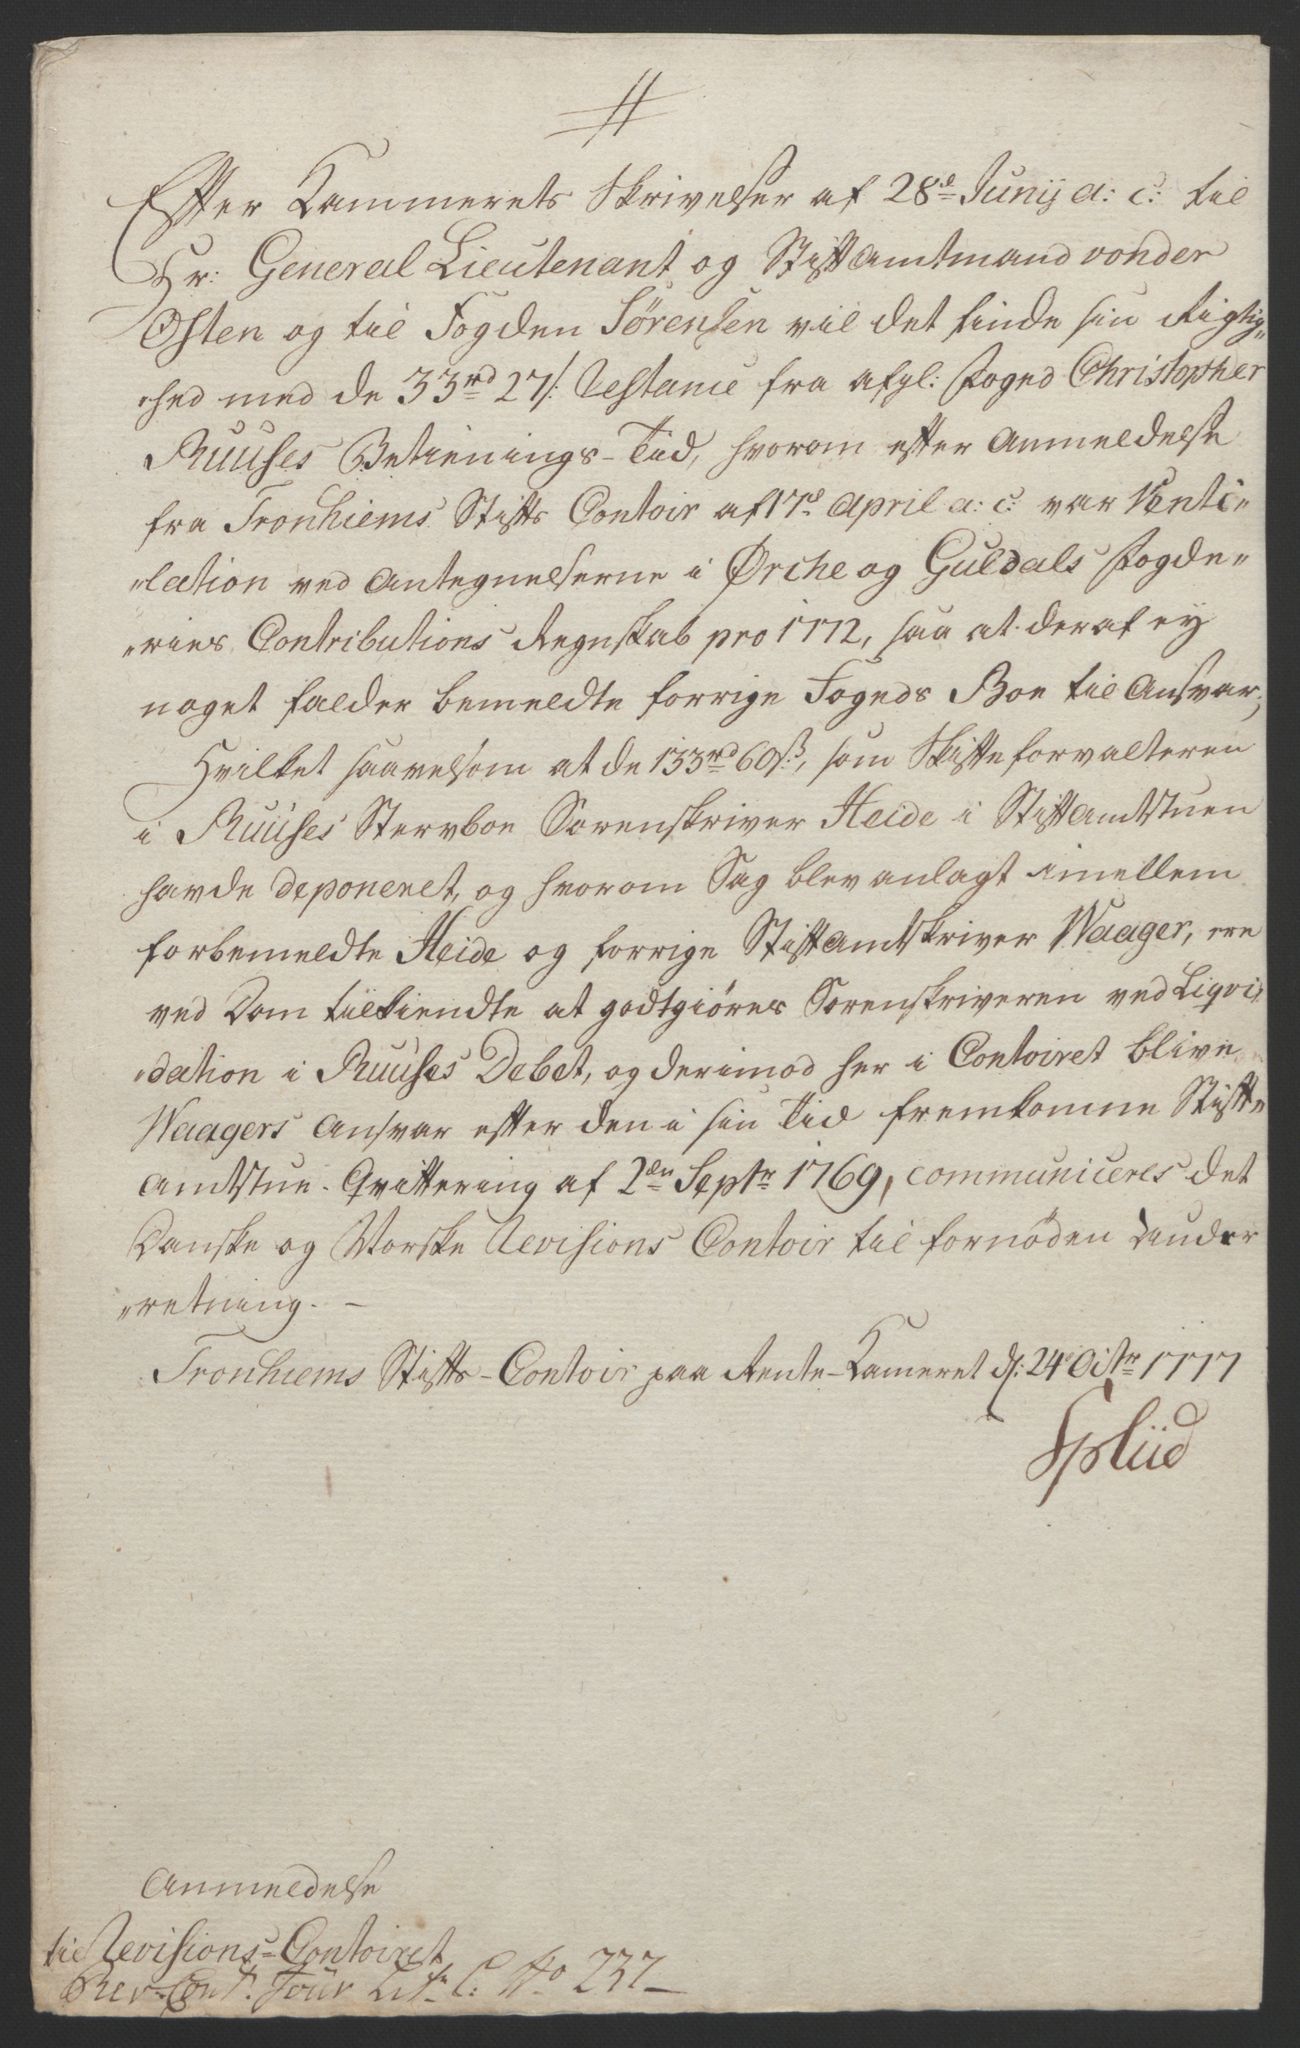 Efter Kammerets Skrivelser af 28de Junij a: c: til
Hr: General Lieutenant og Stiftamtmand vonder
Osten og til Fogden Sörensen vil det finde sin Rigtig„
„hed med de 33rd 27 s: Restance fra afgl: Foged Christopher
Ruuses Betienings-Tid, hvorom efter Anmeldelse
fra Tronhiems Stifts Contoir af 17de April a: c: var Venti„
„lation ved Antegnelserne i Ørche og Guldals Fogde„
„ries Contributions Regnskab pro 1772, saa at deraf ey
noget falder bemeldte forrige Fogeds Boe til Ansvar;
Hvilket saavelsom at de 133rd 60s:, som Skifteforvalteren
i Ruuses Stervboe Sorenskriver Heide i Stiftamtstuen
havde deponeret, og hvorom Sag blev anlagt imellem
forbemeldte Heide og forrige Stiftamtskriver Waager, ere
ved Dom tilkiendte at godtgiöres Sorenskriveren ved Liqvi„
„dation i Ruuses Debet, og derimod her i Contoiret blive
Waagers Ansvar efter den i sin Tid fremkomne Stift„
Amtstue-Qvittering af 2den Septr 1769, communiceres det
Danske og Norske Revisions Contoir til fornöden Under
„retning. –
Tronhiems Stifts-Contoir paa Rente-Kameret d: 24 Octr 1777
Spliid
Anmeldelse
til Revisions-Contoiret
Rev: Cont: Jour Litr C: No 237